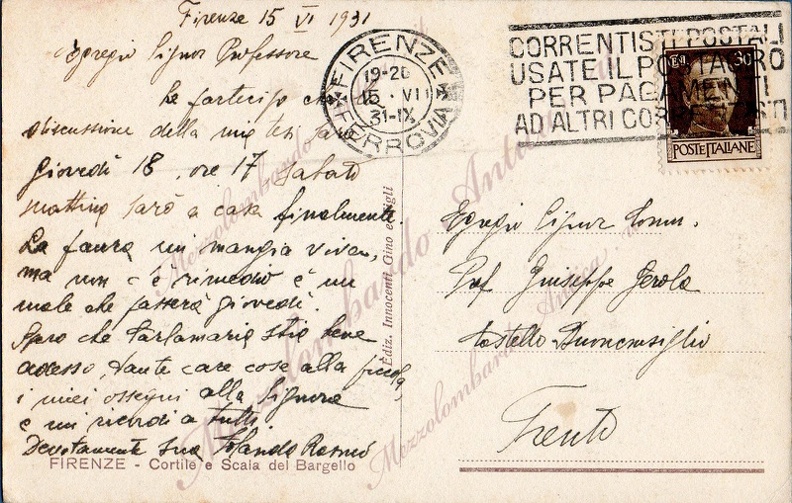 Firenze 15 VI 1931
Egregio Signor Professore
Le partecipo che la
discussione della mia tesi sarà
giovedì 18, ore 17 Sabato
mattina sarò a casa finalmente.
La paura mi mangia viva,
ma non c'è rimedio è un
male che passerà giovedì.
Spero che Carlamaria stia bene
adesso, tante care cose alla piccola,
i miei ossequi alla Signora
e un ricordo a tutti.
Devotamente sua
FIRENZE - Cortile e Scala del Bargello
Ediz. Innocenti Gino e Figli
FIRENZE
19-20
15 · VI
31-IX
FERROVIA
CORRENTISTI POSTALI
USATE IL POSTAGIRO
PER PAGAMENTI
AD ALTRI CORRENTISTI
30
POSTE ITALIANE
Egregio Signor Comm.
Prof Giuseppe Gerola
Castello Buonconsiglio
Trento
Mezzolombardo Antica
Mezzolombardo Antica
Mezzolombardo Antica